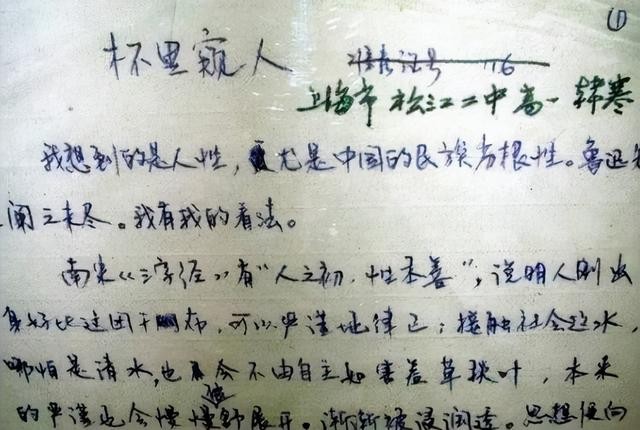 ①
杯里窥人
准考证号 16
上海市松江二中高一韩寒
我想到的是人性,尤是中国的民族劣根性。鲁迅先
阐之未尽。我有我的看法。
南宋《三字经》有“人之初,性本善”,说明人刚出
身好比这团干布,可以严谨地律己;接触社会这水,
哪怕是清水,也会不由自主如害羞草叶,本来
的严谨也会慢慢地舒展开。渐渐被浸润透。思想便向